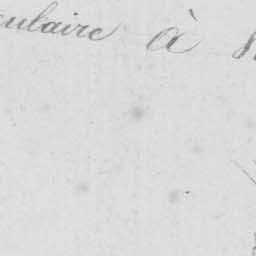 culaire à